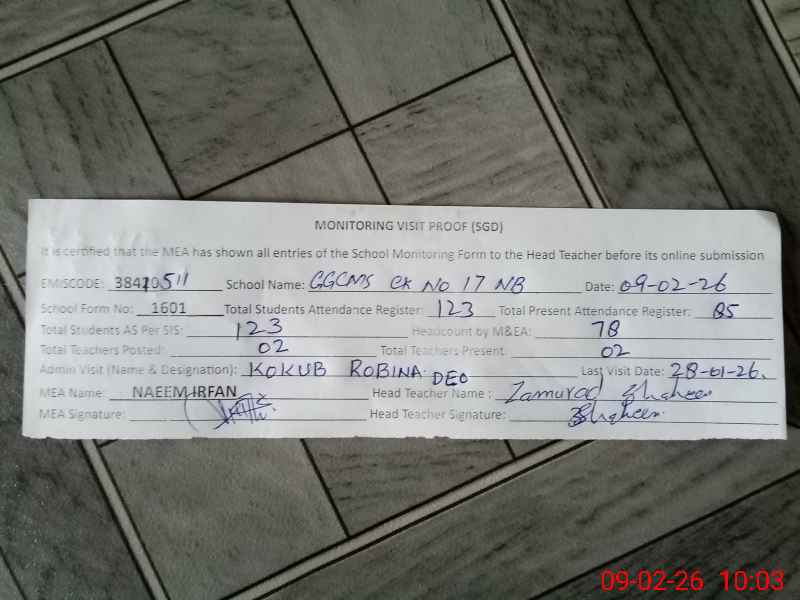 MONITORING VISIT PROOF (SGD)
It is certified that the MEA has shown all entries of the School Monitoring Form to the Head Teacher before its online submission
EMISCODE: 38420511 School Name: GGCMS CK No 17 NB Date: 09-02-26
School Form No: 1601 Total Students Attendance Register: 123 Total Present Attendance Register: 85
Total Students AS Per SIS: 123 Headcount by M&EA: 78
Total Teachers Posted: 02 Total Teachers Present: 02
Admin Visit (Name & Designation): KOKUB ROBINA DEO Last Visit Date: 28-01-26.
MEA Name: NAEEM IRFAN Head Teacher Name : Zamurad Shaheen
MEA Signature: Head Teacher Signature: Shaheen
09-02-26 10:03